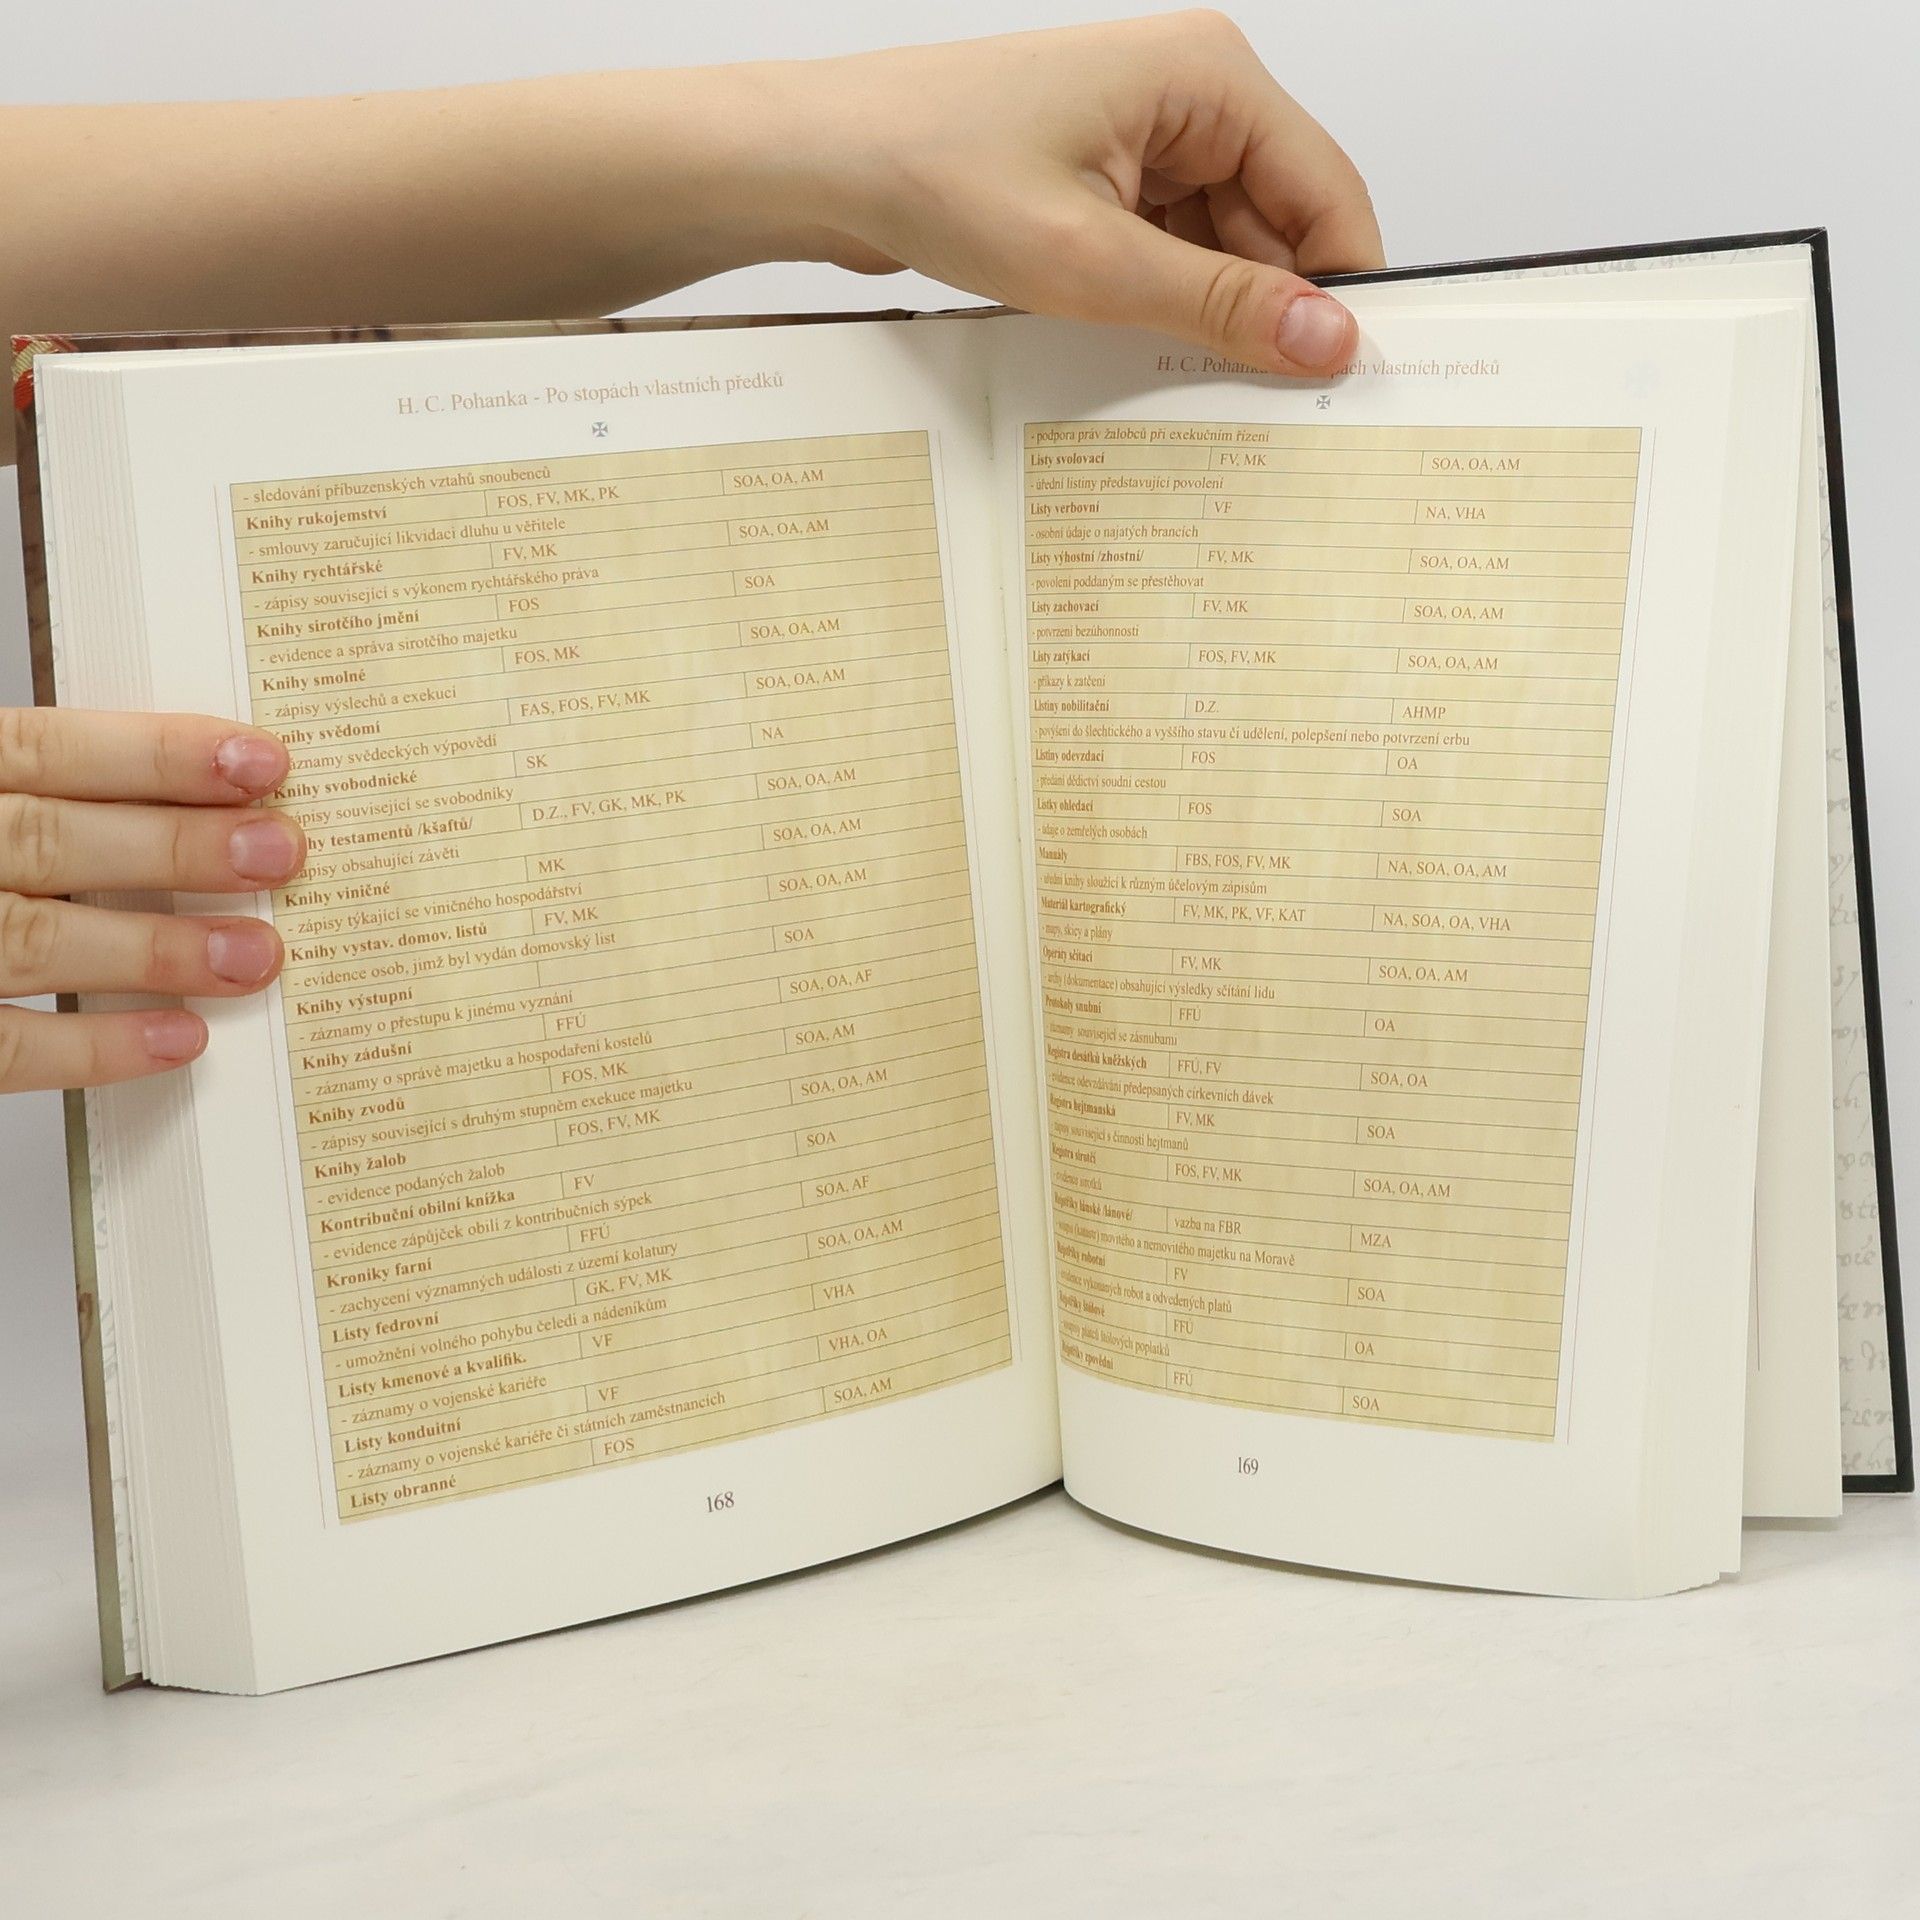 H. C. Pohanka - Po stopách vlastních předků
- sledování příbuzenských vztahů snoubenců
Knihy rukojemství FOS, FV, MK, PK SOA, OA, AM
- smlouvy zaručující likvidaci dluhu u věřitele
Knihy rychtářské FV, MK SOA, OA, AM
- zápisy související s výkonem rychtářského práva
Knihy sirotčího jmění FOS SOA
- evidence a správa sirotčího majetku
Knihy smolné FOS, MK SOA, OA, AM
- zápisy výslechů a exekucí
Knihy svědomí FAS, FOS, FV, MK SOA, OA, AM
záznamy svědeckých výpovědí
Knihy svobodnické SK NA
zápisy související se svobodníky
hy testamentů /kšaftů/ D.Z., FV, GK, MK, PK SOA, OA, AM
zápisy obsahující závěti
Knihy viničné MK SOA, OA, AM
- zápisy týkající se viničného hospodářství
Knihy vystav. domov. listů FV, MK SOA, OA, AM
- evidence osob, jimž byl vydán domovský list
Knihy výstupní SOA
- záznamy o přestupu k jinému vyznání
Knihy zádušní FFÚ SOA, OA, AF
- záznamy o správě majetku a hospodaření kostelů
Knihy zvodů FOS, MK SOA, AM
- zápisy související s druhým stupněm exekuce majetku
Knihy žalob FOS, FV, MK SOA, OA, AM
- evidence podaných žalob
Kontribuční obilní knížka FV SOA
- evidence zápůjček obilí z kontribučních sýpek
Kroniky farní FFÚ SOA, AF
- zachycení významných událostí z území kolatury
Listy fedrovní GK, FV, MK SOA, OA, AM
- umožnění volného pohybu čeledi a nádeníkům
Listy kmenové a kvalifik. VF VHA
- záznamy o vojenské kariéře
Listy konduitní VF VHA, OA
- záznamy o vojenské kariéře či státních zaměstnancích
Listy obranné FOS SOA, AM
168
H. C. Pohanka vlastních předků
- podpora práv žalobců při exekučním řízení
Listy svolovací FV, MK SOA, OA, AM
- úřední listiny představující povolení
Listy verbovní VF NA, VHA
- osobní údaje o najatých brancích
Listy výhostní /zhostní/ FV, MK SOA, OA, AM
- povolení poddaným se přestěhovat
Listy zachovací FV, MK SOA, OA, AM
- potvrzení bezúhonnosti
Listy zatýkací FOS, FV, MK SOA, OA, AM
- příkazy k zatčení
Listiny nobilitační D.Z. AHMP
- povýšení do šlechtického a vyššího stavu či udělení, polepšení nebo potvrzení erbu
Listiny odevzdací FOS OA
- předání dědictví soudní cestou
Lístky ohledací FOS SOA
- údaje o zemřelých osobách
Manuály FBS, FOS, FV, MK NA, SOA, OA, AM
- úřední knihy sloužící k různým účelovým zápisům
Materiál kartografický FV, MK, PK, VF, KAT NA, SOA, OA, VHA
- mapy, skicy a plány
Operáty sčítací FV, MK SOA, OA, AM
- archy (dokumentace) obsahující výsledky sčítání lidu
Protokoly snubní FFÚ OA
- záznamy související se zásnubami
Registra desátků kněžských FFÚ, FV SOA, OA
- evidence odevzdávání předepsaných církevních dávek
Registra hejtmanská FV, MK SOA
- zápisy související s činností hejtmanů
Registra sirotčí FOS, FV, MK SOA, OA, AM
- evidence sirotků
Rejstříky lánské /lánové/ vazba na FBR MZA
- soupis (katastr) movitého a nemovitého majetku na Moravě
Rejstříky robotní FV SOA
- evidence vykonaných robot a odvedených platů
Rejstříky štólové FFÚ OA
- soupisy plátců štólových poplatků
Rejstříky zpovědní FFÚ SOA
169